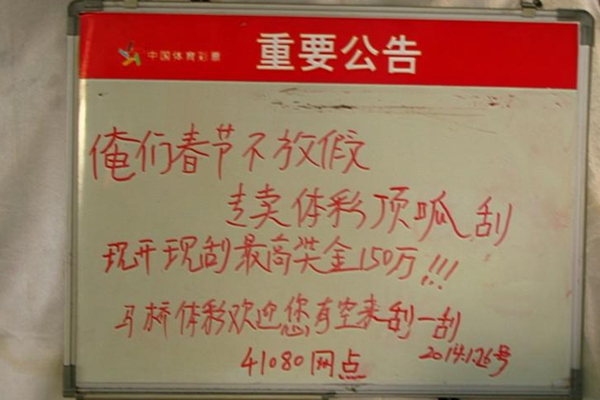 中国体育彩票
重要公告
俺们春节不放假
专卖体彩顶呱刮
现开现刮最高奖金150万!!!
马桥体彩欢迎您有空来刮一刮
41080网点
2014.1.26号